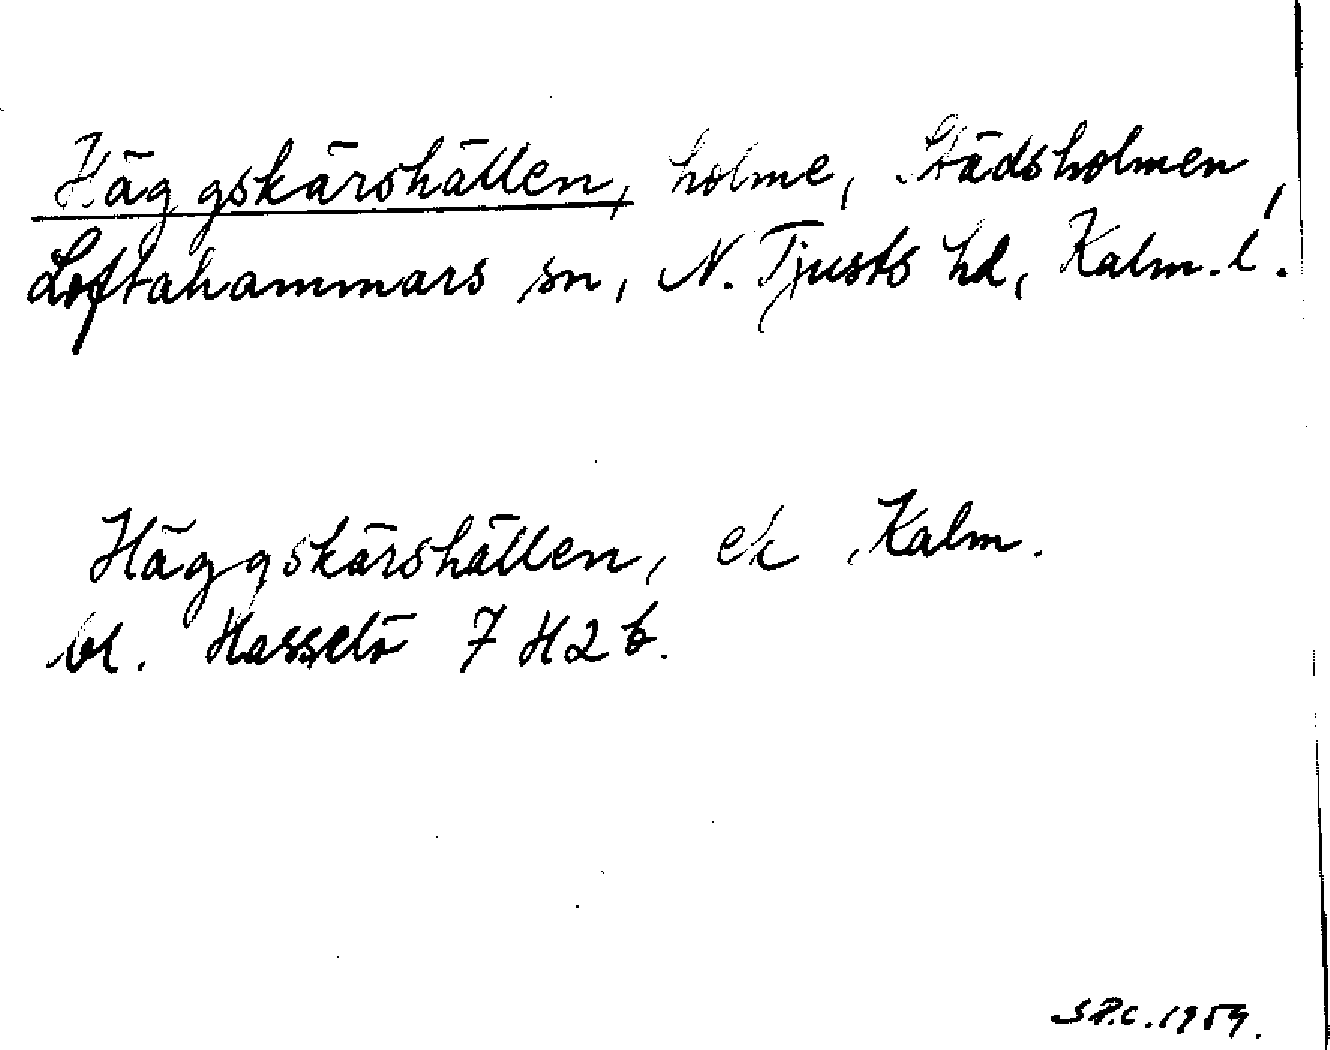 Häggskärshällen, holme, Städsholmen,
Loftahammars sn, N. Tjusts hd, Kalm. l.
Häggskärshällen, ek Kalm.
bl. Hasselö 7 H 2 b.
S.P.C. 1954.